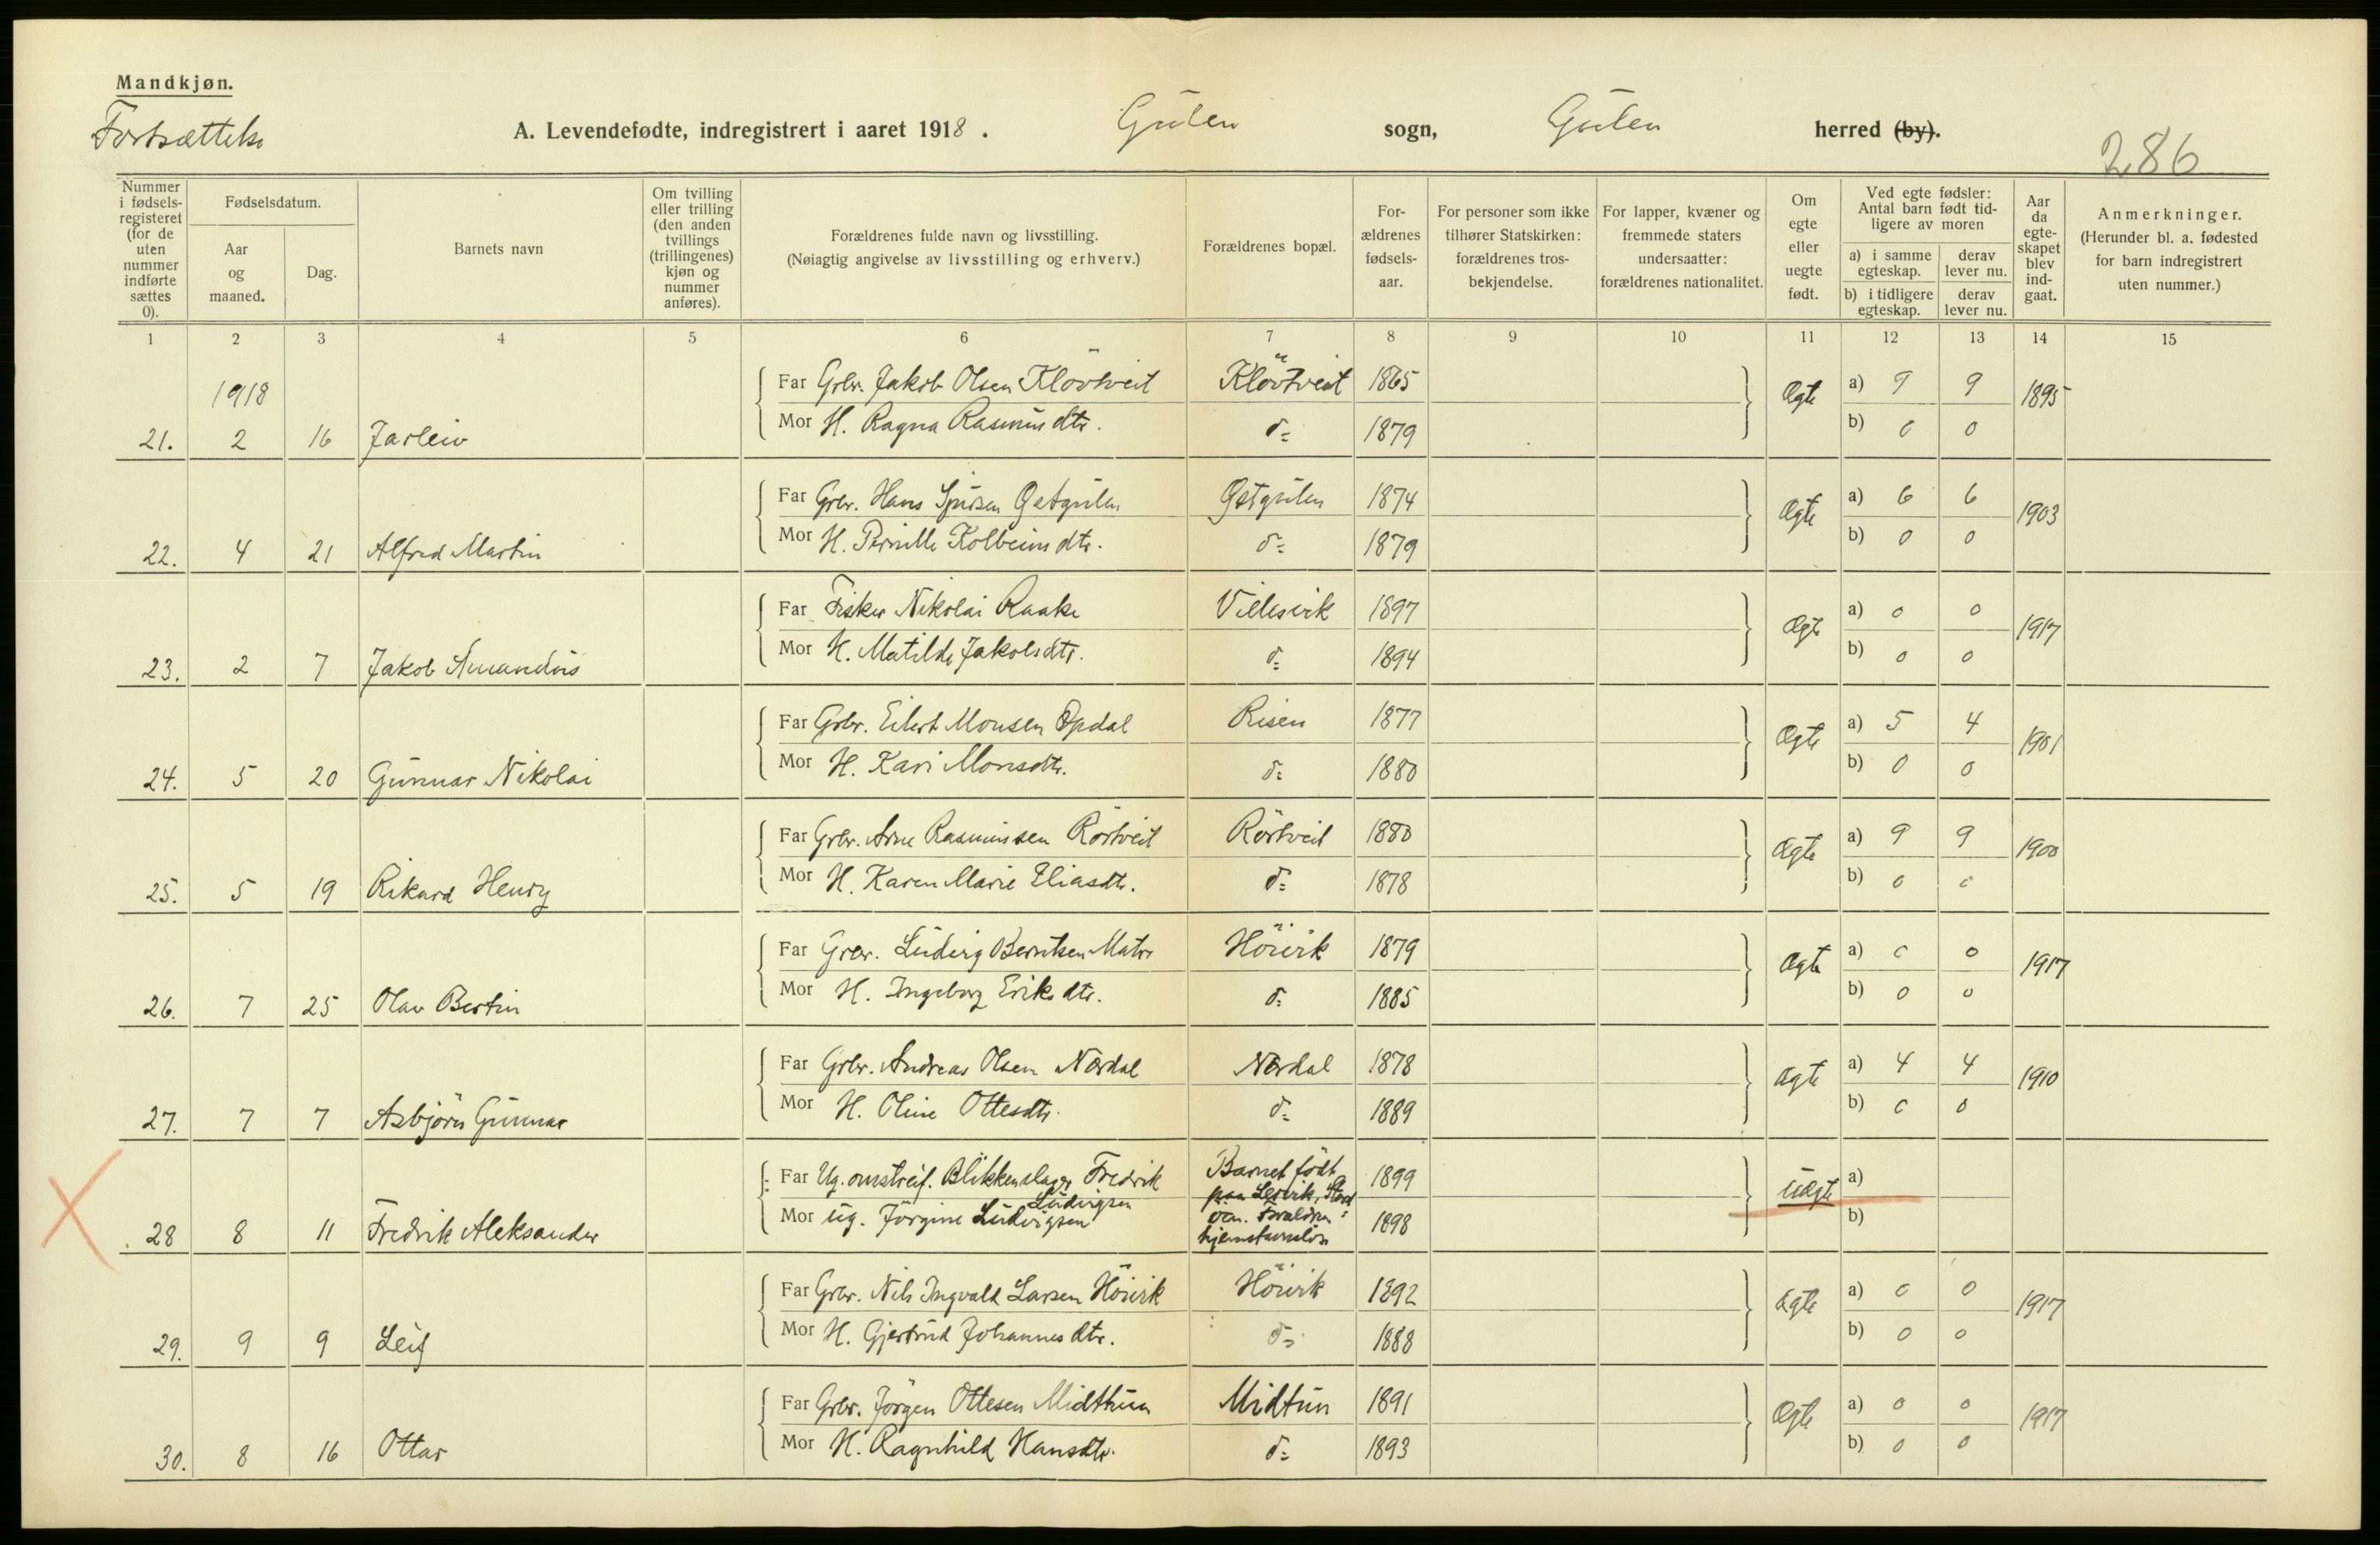 Mandkjøn.
Fortsættelse
A. Levendefødte, indregistrert i aaret 1918.
Gulen sogn, Gulen herred (by).
286
Nummer i fødsels-registeret (for de uten nummer indførte sættes 0).
Fødselsdatum.
Aar og maaned.
Dag.
Barnets navn
Om tvilling eller trilling (den anden tvillings (trillingenes) kjøn og nummer anføres).
Forældrenes fulde navn og livsstilling.
(Nøiagtig angivelse av livsstilling og erhverv.)
Forældrenes bopæl.
For-ældrenes fødsels-aar.
For personer som ikke tilhører Statskirken: forældrenes tros-bekjendelse.
For lapper, kvæner og fremmede staters undersaatter: forældrenes nationalitet.
Om egte eller uegte født.
Ved egte fødsler: Antal barn født tid-ligere av moren
a) i samme egteskap.
derav lever nu.
b) i tidligere egteskap.
derav lever nu.
Aar da egte-skapet blev ind-gaat.
Anmerkninger.
(Herunder bl. a. fødested for barn indregistrert uten nummer.)
1 2 3 4 5 6 7 8 9 10 11 12 13 14 15
1918
Far Grbr. Jakob Olsen Klövtveit Klövtveit 1865 Ægte a) 9 9 1895
21. 2 16 Jarleiv Mor H. Ragna Rasmusdtr. do 1879 b) 0 0
Far Grbr. Hans Sjursen Øetgulen Øetgulen 1874 Ægte a) 6 6 1903
22. 4 21 Alfred Martin Mor H. Pernille Kolbeinsdtr. do 1879 b) 0 0
Far Fisker Nikolai Raake Villesvik 1897 Ægte a) 0 0 1917
23. 2 7 Jakob Amandus Mor H. Matilde Jakobsdtr. do 1894 b) 0 0
Far Grbr. Eilert Monsen Opdal Risen 1877 Ægte a) 5 4 1901
24. 5 20 Gunnar Nikolai Mor H. Kari Monsdtr. do 1880 b) 0 0
Far Grbr. Arne Rasmussen Rörtveit Rörtveit 1880 Ægte a) 9 9 1900
25. 5 19 Rikard Henry Mor H. Karen Marie Eliasdtr. do 1878 b) 0 0
Far Grbr. Ludvig Berntsen Matre Höivik 1879 Ægte a) 0 0 1917
26. 7 25 Olav Bertin Mor H. Ingeborg Eriksdtr. do 1885 b) 0 0
Far Grbr. Andreas Olsen Nordal Nordal 1878 Ægte a) 4 4 1910
27. 7 7 Asbjörn Gunnar Mor H. Oline Ottesdtr. do 1889 b) 0 0
Far Ug. omstreif. Blikkenslager Fredrik Ludvigsen Barnet født 1899 Uægte a)
paa Lervik, Stord
28 8 11 Fredrik Aleksander Mor ug. Jörgine Ludvigsen 1898 b)
hjemstavnslös
Far Grbr. Nils Ingvald Larsen Höivik Höivik 1892 Ægte a) 0 0 1917
29. 9 9 Leif Mor H. Gjertrud Johannesdtr. do 1888 b) 0 0
Far Grbr. Jörgen Ottesen Midthun Midtun 1891 Ægte a) 0 0 1917
30. 8 16 Ottar Mor H. Ragnhild Hansdtr. do 1893 b) 0 0